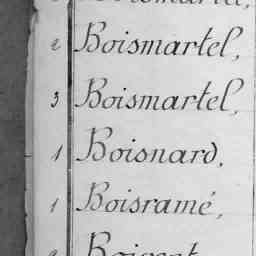 2 Boismartel,
3 Boismartel,
1 Boisnard,
1 Boisramé,